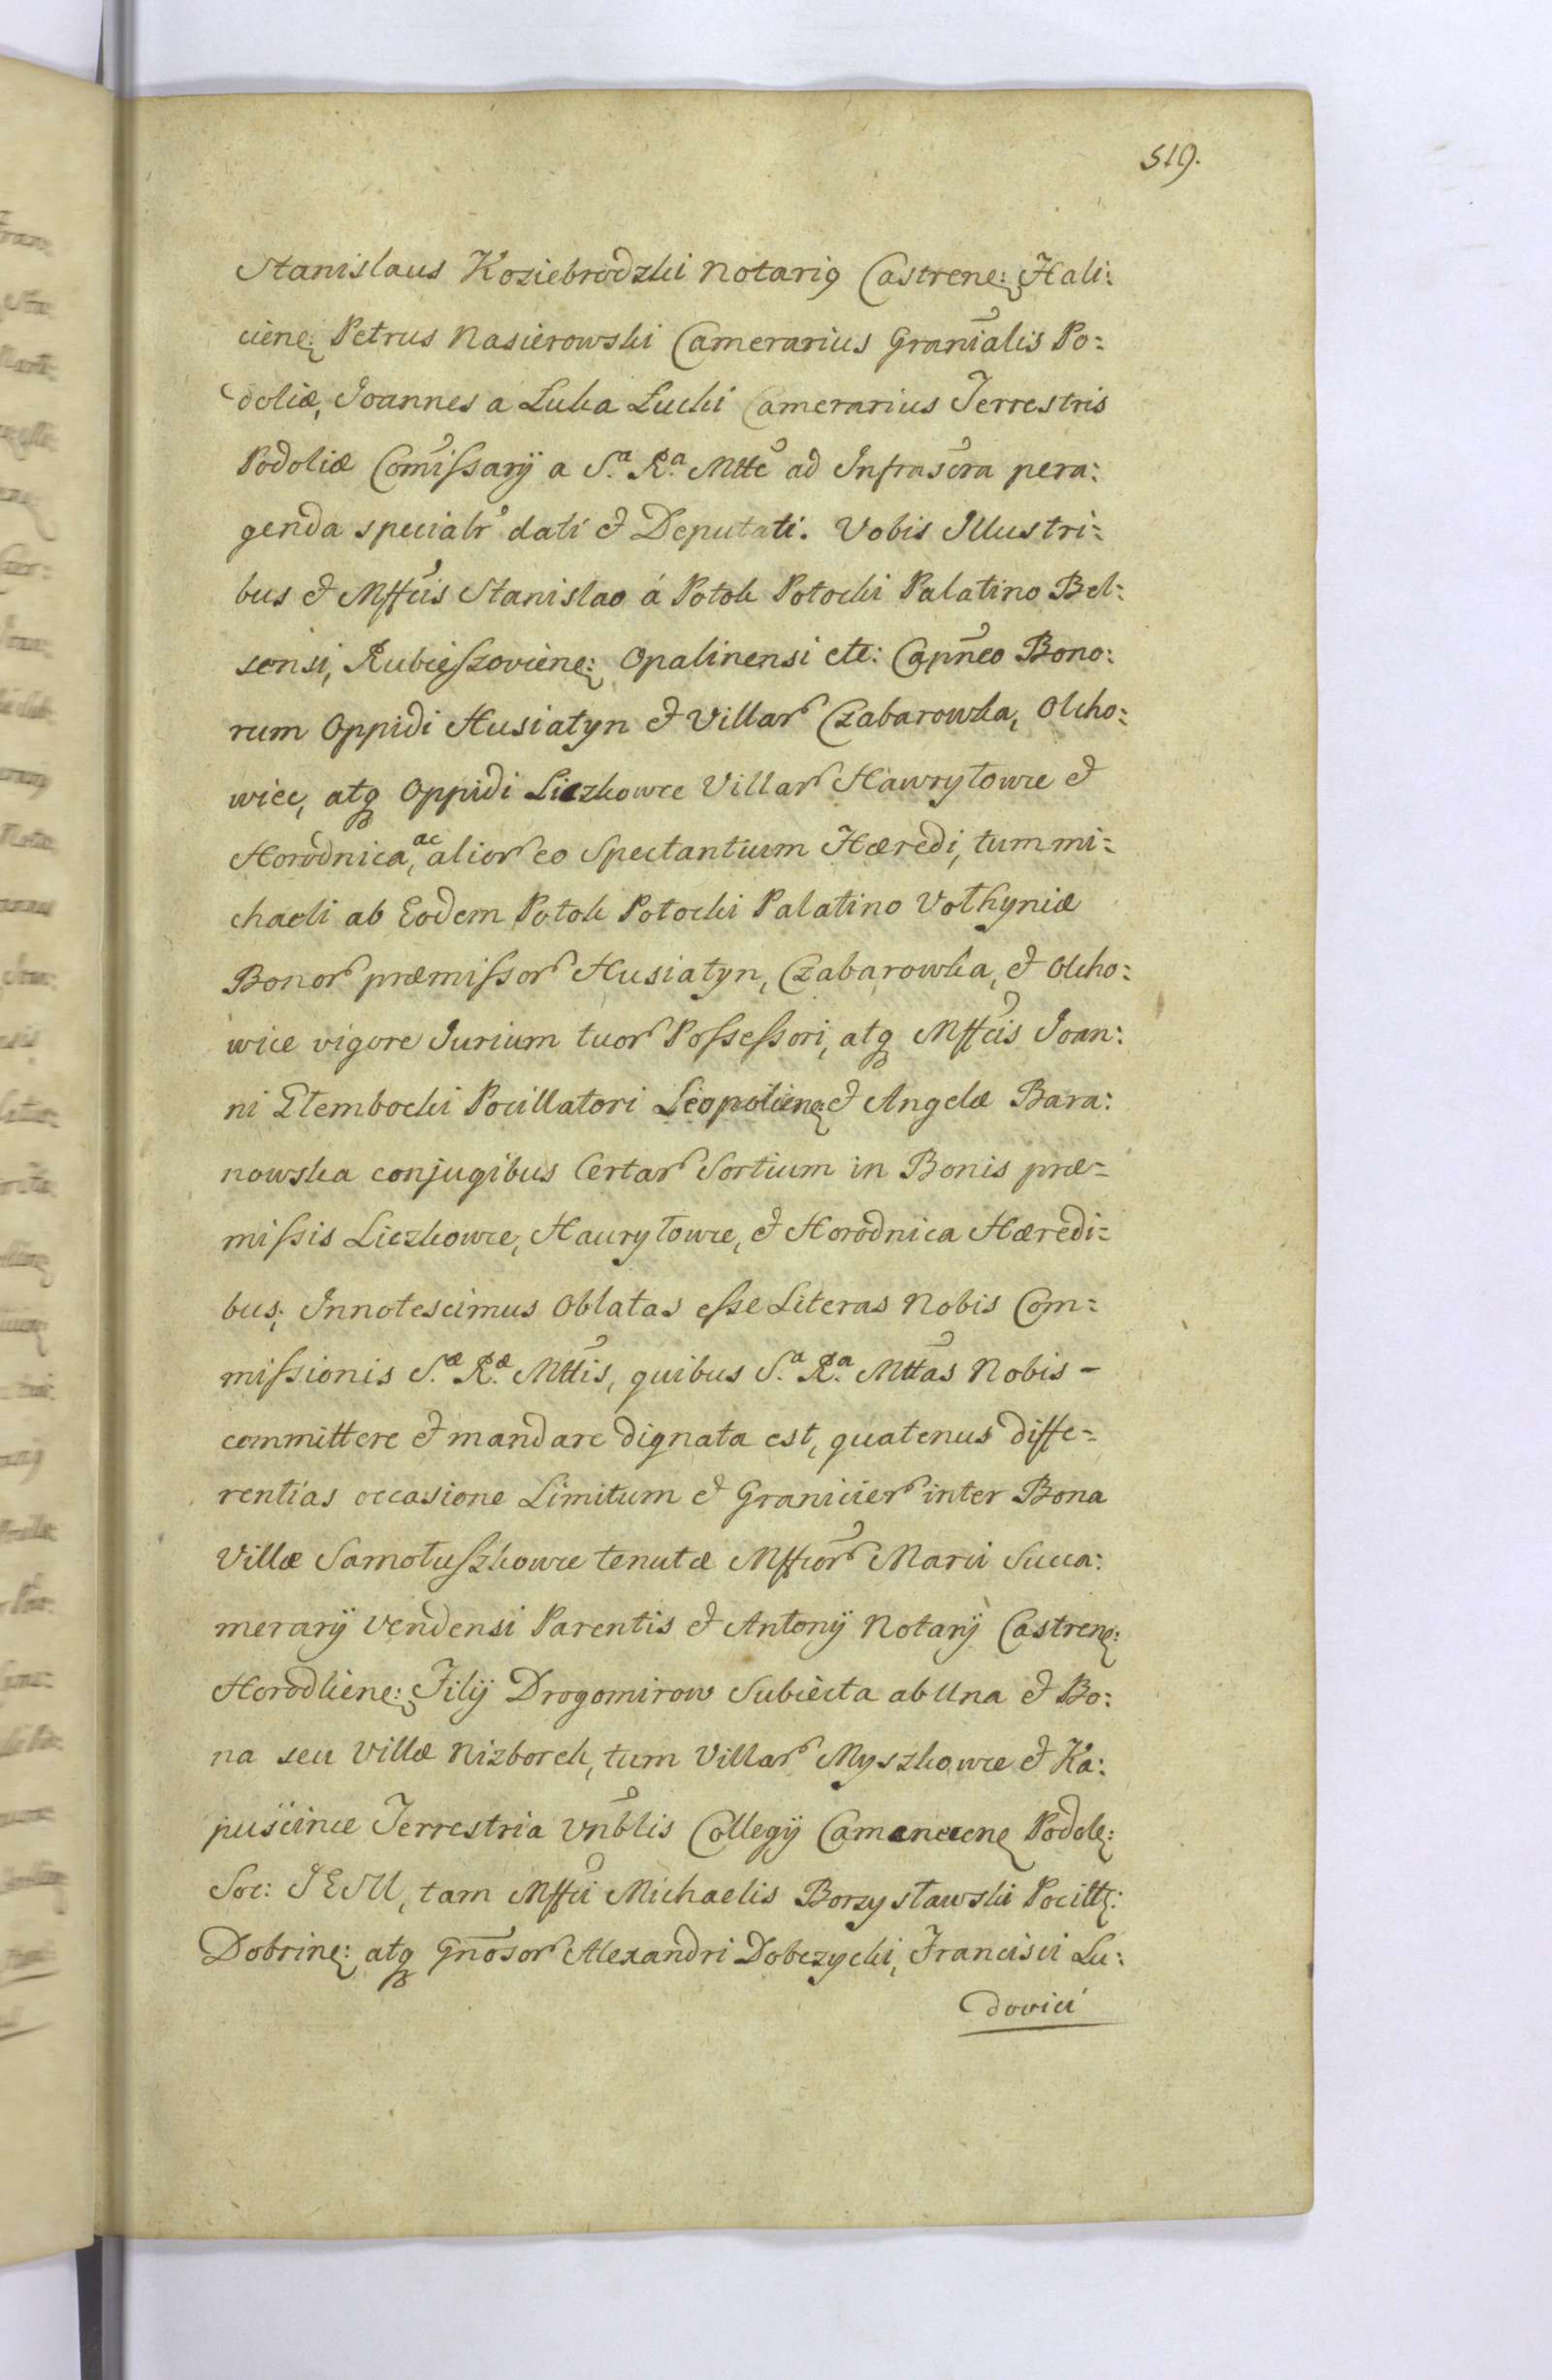 519.
Stanislaus Koziebrodzki Notari9 Castrene: Hali:
ciene: Petrus Nasierowski Camerarius Granialis Po:
doliæ, Joannes a Luka Łucki Camerarius Terrestris
Podoliæ Comissarÿ a S.ª R.ª Mtte ad Infrascra pera:
genda specialr dati & Deputati. Vobis Illustri:
bus & Mffcis Stanislao á Potok Potocki Palatino Bel:
sensi, Rubieszoviene: Opalinensi etc: Capneo Bono:
rum Oppidi Husiatyn & Villar Czabarowka, Olcho:
wiec, atq Oppidi Liczkowce Villar Hawryłowce &
Horodnica, ac alior eo Spectantium Hæredi, tum mi:
chaeli ab Eodem Potok Potocki Palatino Volhyniæ
Bonor præmissor Husiatyn, Czabarowka, & Olcho:
wice vigore Jurium tuor Possessori, atq Mffcis Joan:
ni Ptembocki Pocillatori Leopoliene: & Angelæ Bara:
nowska conjugibus Certar Sortium in Bonis præ:
missis Liczkowce, Hauryłowce, & Horodnica Hæredi:
bus; Innotescimus Oblatas esse Literas Nobis Com:
missionis S.æ R.æ Mttis, quibus S.ª R.ª Mttas Nobis -
committere & mandare dignata est, quatenus diffe:
rentias occasione Limitum & Granicier inter Bona
Villæ Samołuszkowce tenutæ Mffcor Marci Succa:
merarÿ Vendensi Parentis & Antonÿ Notarÿ Castrene:
Horodliene: Filÿ Drogomirow Subiecta ab Una & Bo:
na seu Villæ Nizborek, tum Villar Myszkowce & Ka:
puscince Terrestria Vnblis Collegÿ Camenecene Podole:
Soc: JESU, tam Mffci Michaelis Borzysławski Pocill:
Dobrine: atq Gnosor Alexandri Dobczycki, Francisci Lu:
dovici